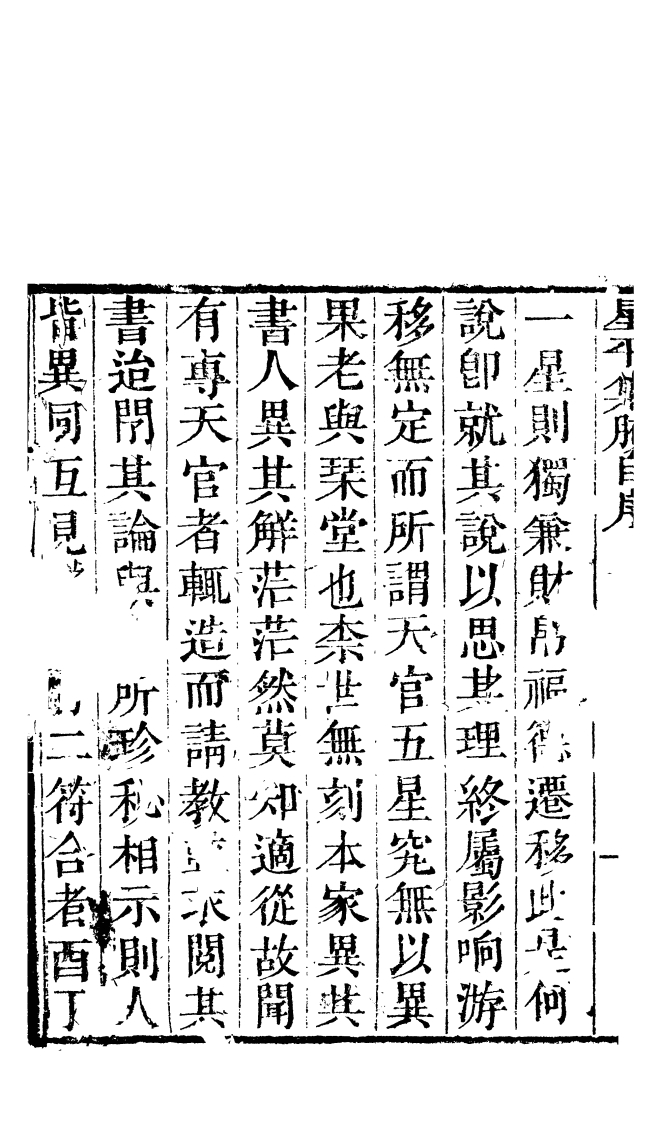 星平集腋自序
一星則獨兼財帛福德遷移此是何
說卽就其說以思其理終屬影响游
移無定而所謂天官五星究無以異
果老與琹堂也柰世無刻本家異其
書人異其解茫茫然莫知適從故聞
有專天官者輒造而請教並求閱其
書迨閱其論與所珍秘相示則人
皆異同互見二符合者酉丁
一